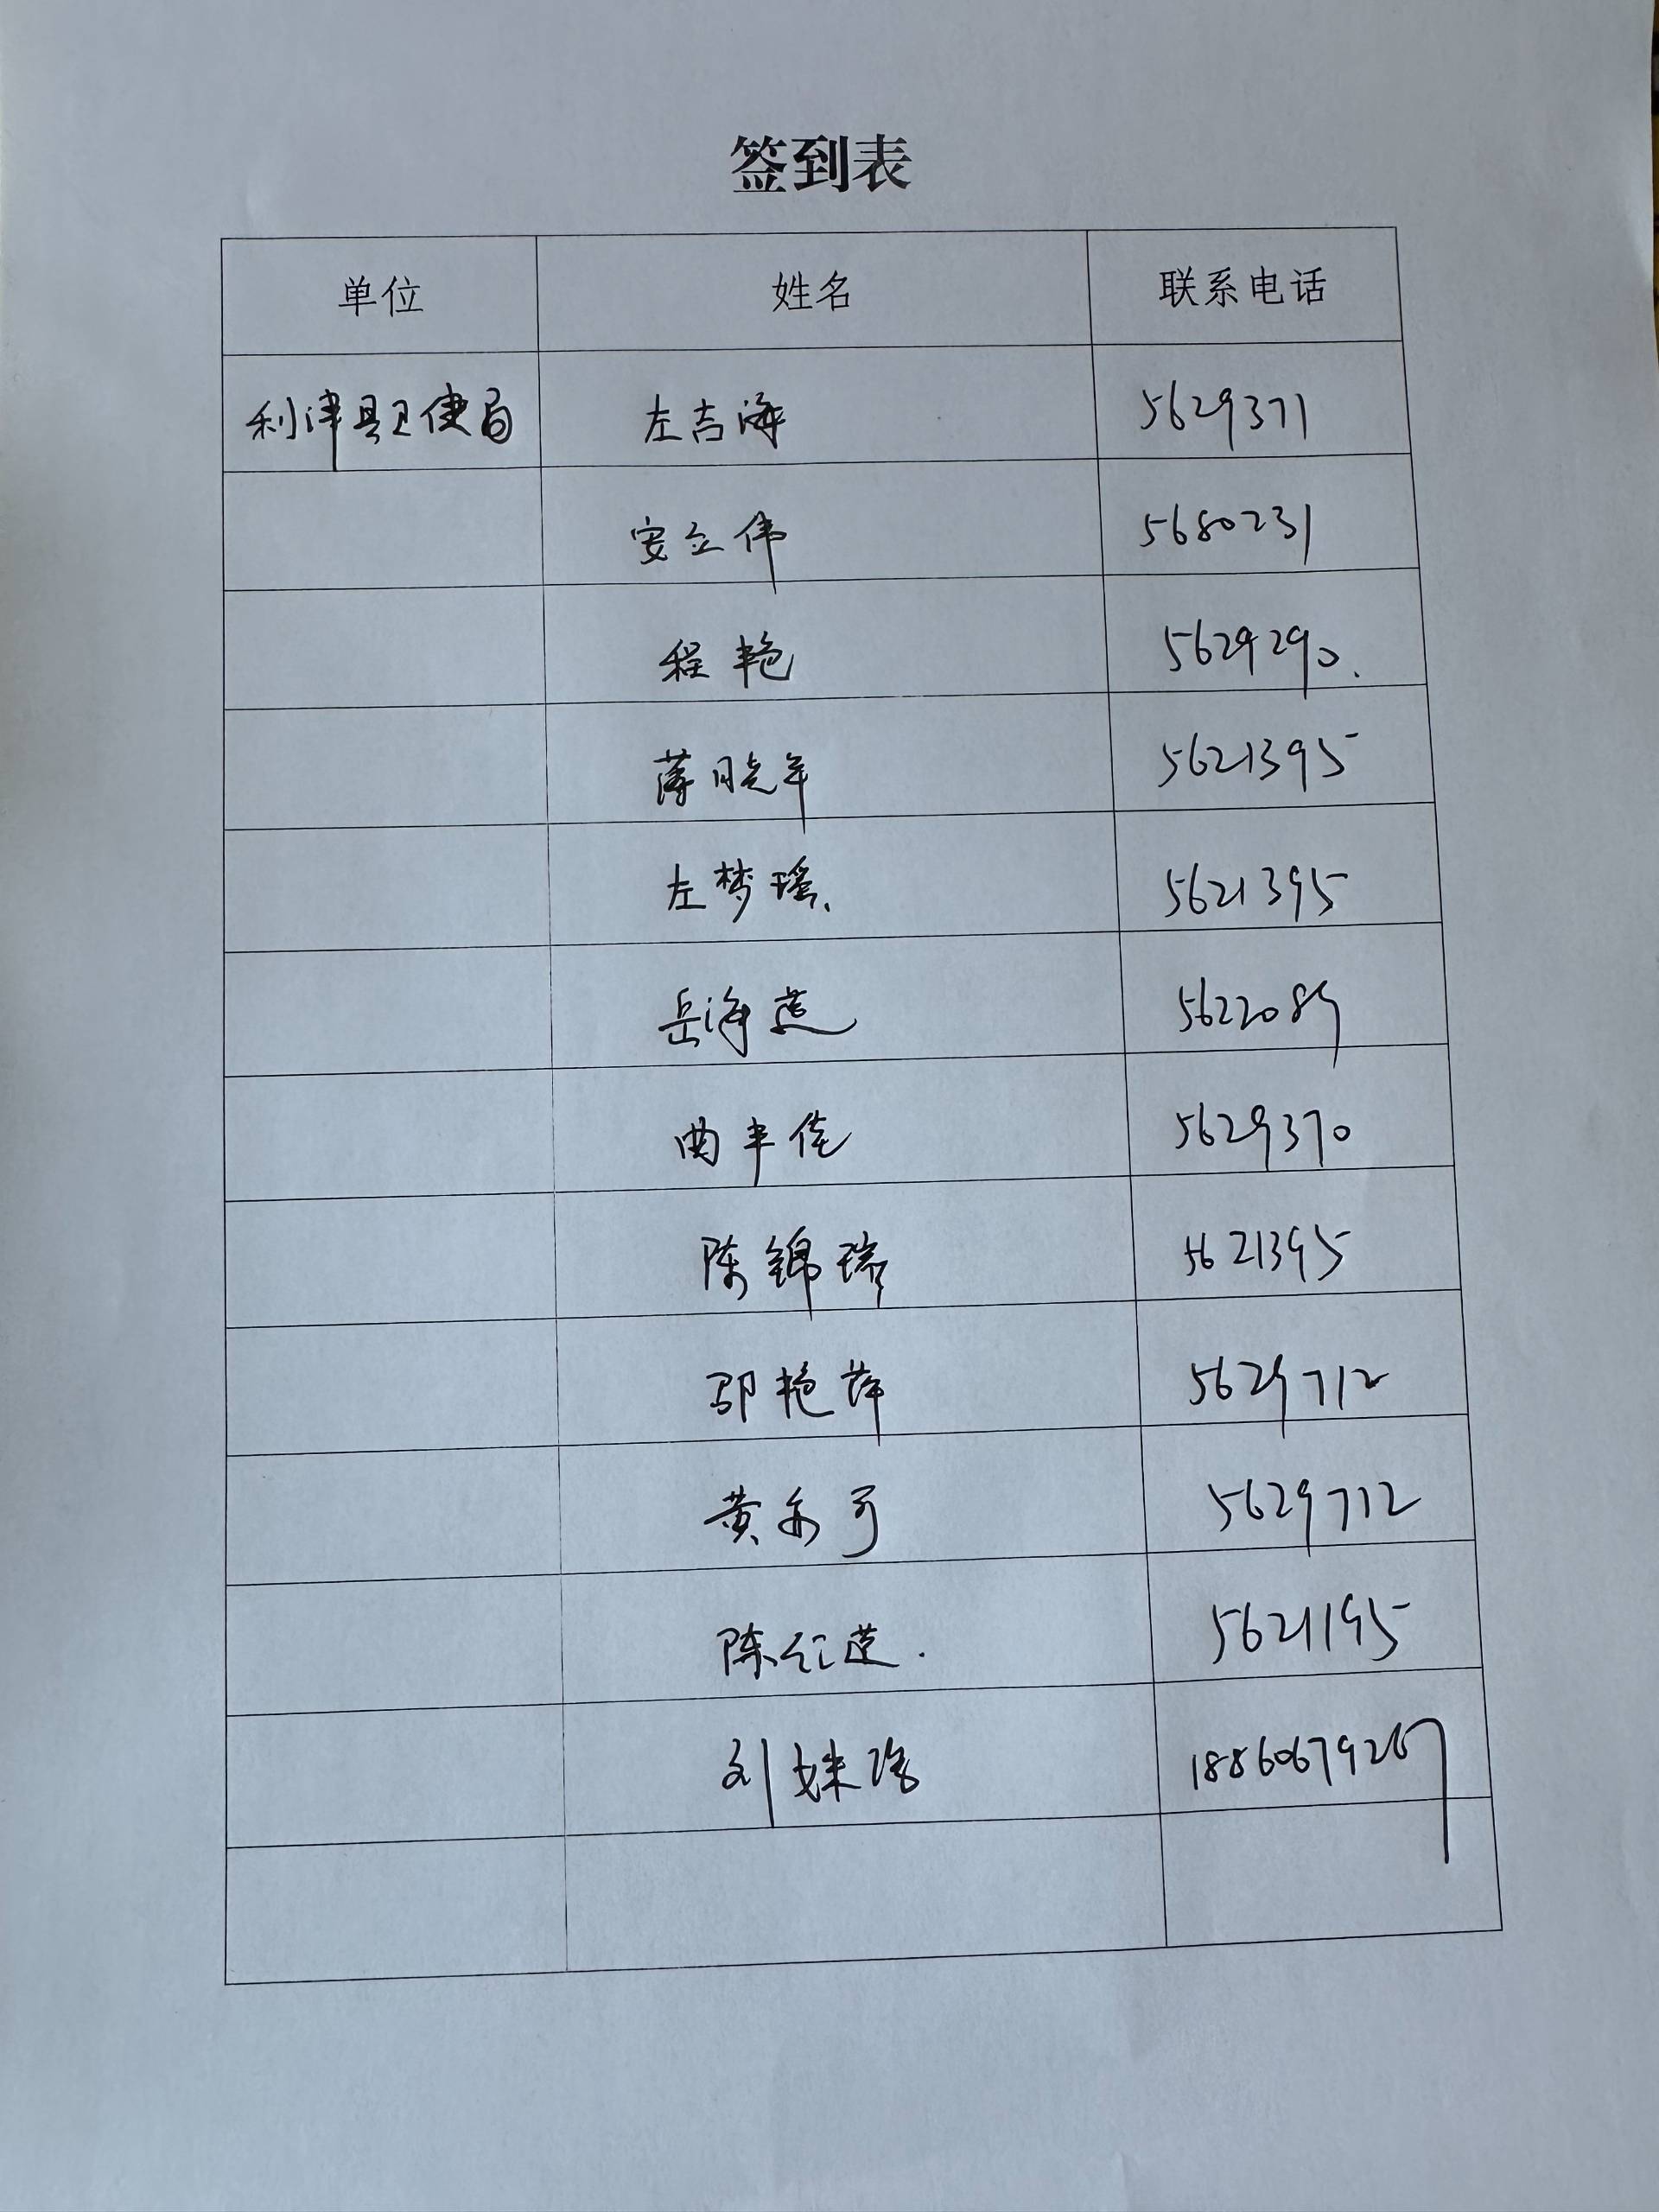 签到表
单位 姓名 联系电话
利津县卫健局 左吉海 5629371
安立伟 5680231
程艳 5629290.
薄晓军 5621395
左梦瑶、 5621395
岳海燕 5622089
曲丰佳 5629370
陈锦瑞 5621395
邵艳萍 5629712
黄亦可 5629712
陈红莲. 5621195
刘姝 18860679267